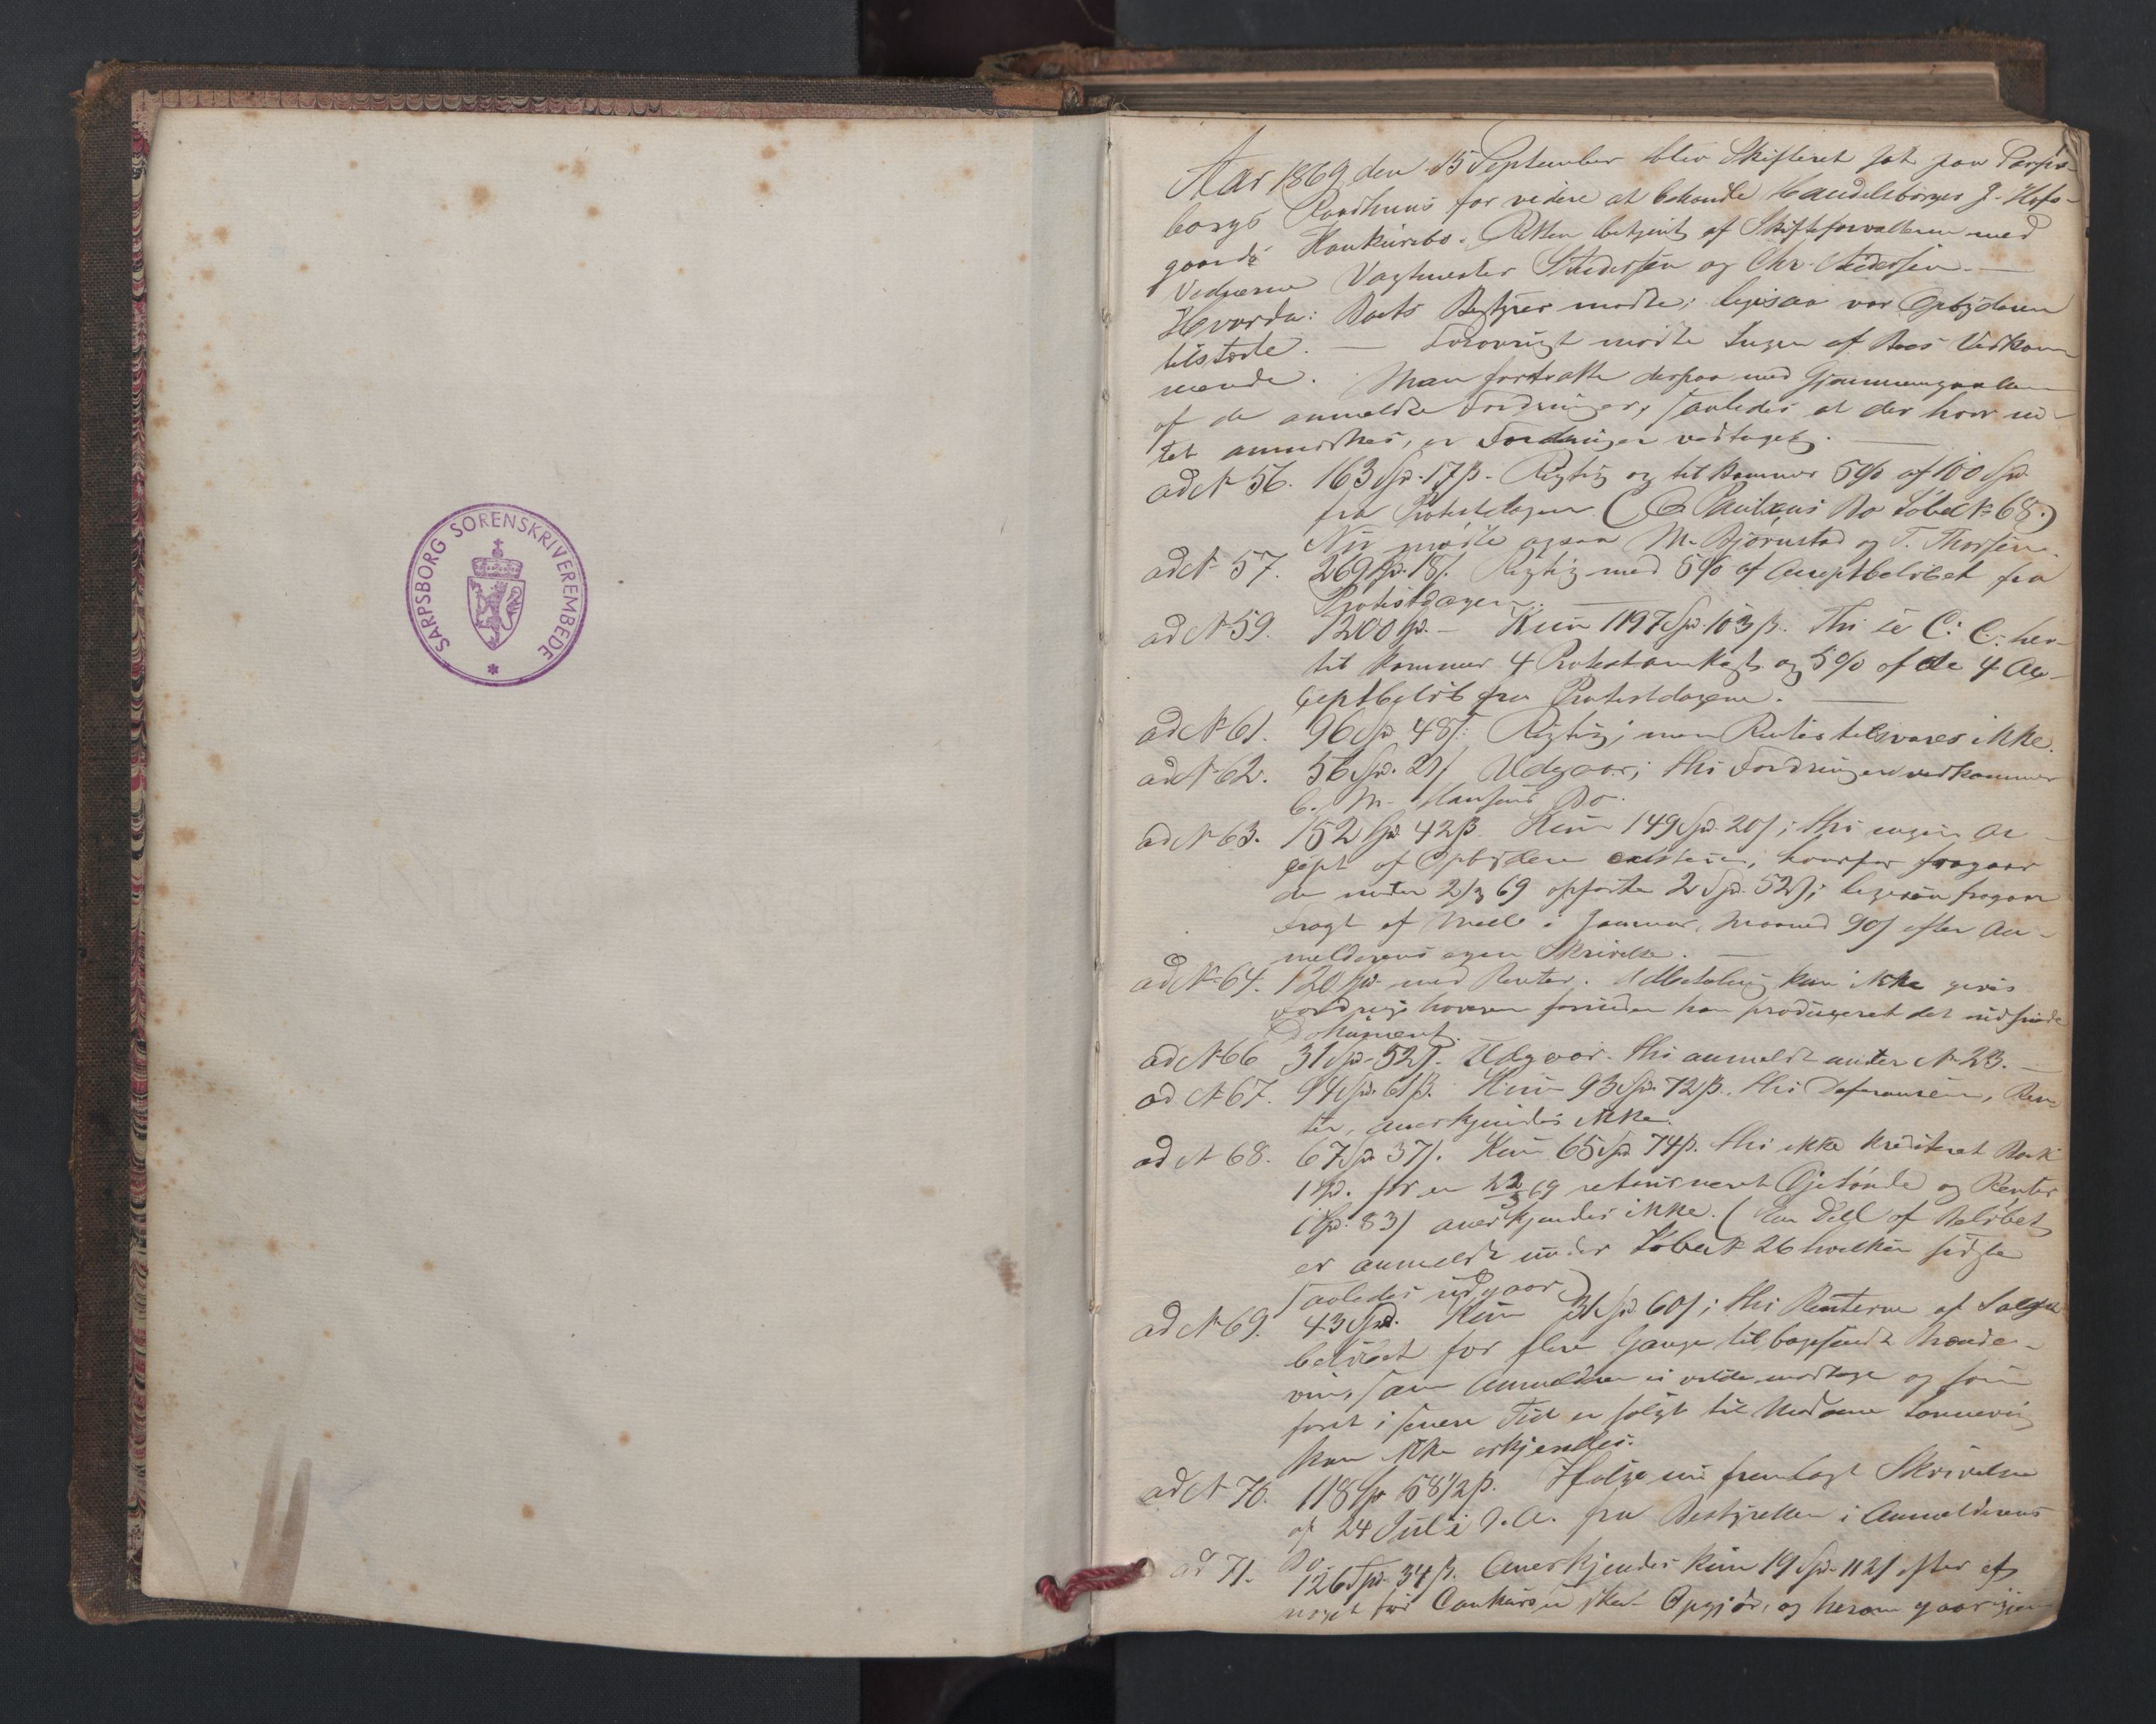 SARPSBORG SORENSKRIVEREMBEDE
Aar 1869 den 15 September blev Skifteret sat paa Sarps-
borgs Raadhuus for videre at behandle Handelsborger J. Hafs-
gaards Konkursbo. Retten betjent af Skifteforvalteren med
Vidnerne Vagtmester Pedersen og Chr. Andersen.
Hvorda: Boets Bestyrer mødte; ligesaa var Opbyderen
tilstede. — Forøvrigt mødte Ingen af Boets Vedkom-
mende. Man fortsatte derpaa med Gjennemgaaelsen
af de anmeldte Fordringer, saaledes at der hvor in-
tet anmærkes, er Fordringen vedtaget.
ad No 56. 163 Spd. 17 ß. Rigtig og tilkommer 5% af 100 Spd.
fra Protestdagen (C Paulsens Bo Løbe No 68.)
Nu mødte ogsaa M. Bjørnstad og T. Thorsen.
ad No 57. 269 Spd. 18 ß. Rigtig med 5% af Acceptbeløbet fra
Protestdagen.
ad No 59. 1200 Spd. — Kun 1197 Spd. 103 ß. Thi se C: C. her-
til kommer 4 Protestomkost. og 5% af de 4 Ac-
ceptbeløb fra Protestdagene.
ad No 61. 96 Spd. 48 ß. Rigtig; men Renter tilsvares ikke.
ad No 62. 56 Spd. 21 ß Udgaar; thi Fordringen vedkommer
C. M. Hansens Bo.
ad No 63. 152 Spd. 42 ß. Kun 149 Spd. 20 ß; thi ingen Ac-
cept af Opbyderen existerer, hvorfor fragaar
de under 2/3 69 opførte 2 Spd. 52 ß; ligesaa fragaar
Fragt af Meel i Januar Maaned 90 ß efter An-
melderens egen Skrivelse.
ad No 64. 120 Spd. med Renter. Udbetaling kan ikke gives
forinden han produceret det
Dokument.
ad No 66 31 Spd. 52 ß. Udgaar. thi anmeldt under No 23.
ad No 67. 94 Spd. 61 ß. Kun 93 Spd. 72 ß. thi Ren-
ter, anerkjendes ikke.
ad No 68. 67 Spd. 37 ß. Kun 65 Spd. 74 ß. thi ikke krediteret Boet
1 Spd. for en 22/3 69 returneret Øltønde og Renter
1 Spd. 83 ß anerkjendes ikke. (En Deel af Beløbet
er anmeldt under Løbe No 26 hvilken sidste
saaledes udgaar)
ad No 69. 43 Spd. Kun 31 Spd. 60 ß; thi Renterne af Salgs-
beløbet for flere Gange tilbagesendt Brænde-
viin, som Anmelderen ei vilde modtage og som
først i senere Tid er solgt til Madame
kan ikke erkjendes.
ad No 70. 118 Spd. 58 1/2 ß. Ifølge nu fremlagt Skrivelse
af 24 Juli d. A. fra Bestyrelsen i Anmelderens
Bo.
ad 71. 126 Spd. 34 ß. Anerkjendes kun 19 Spd. 112 ß efter et
noget før Conkursen skeet Opgjør, og herom